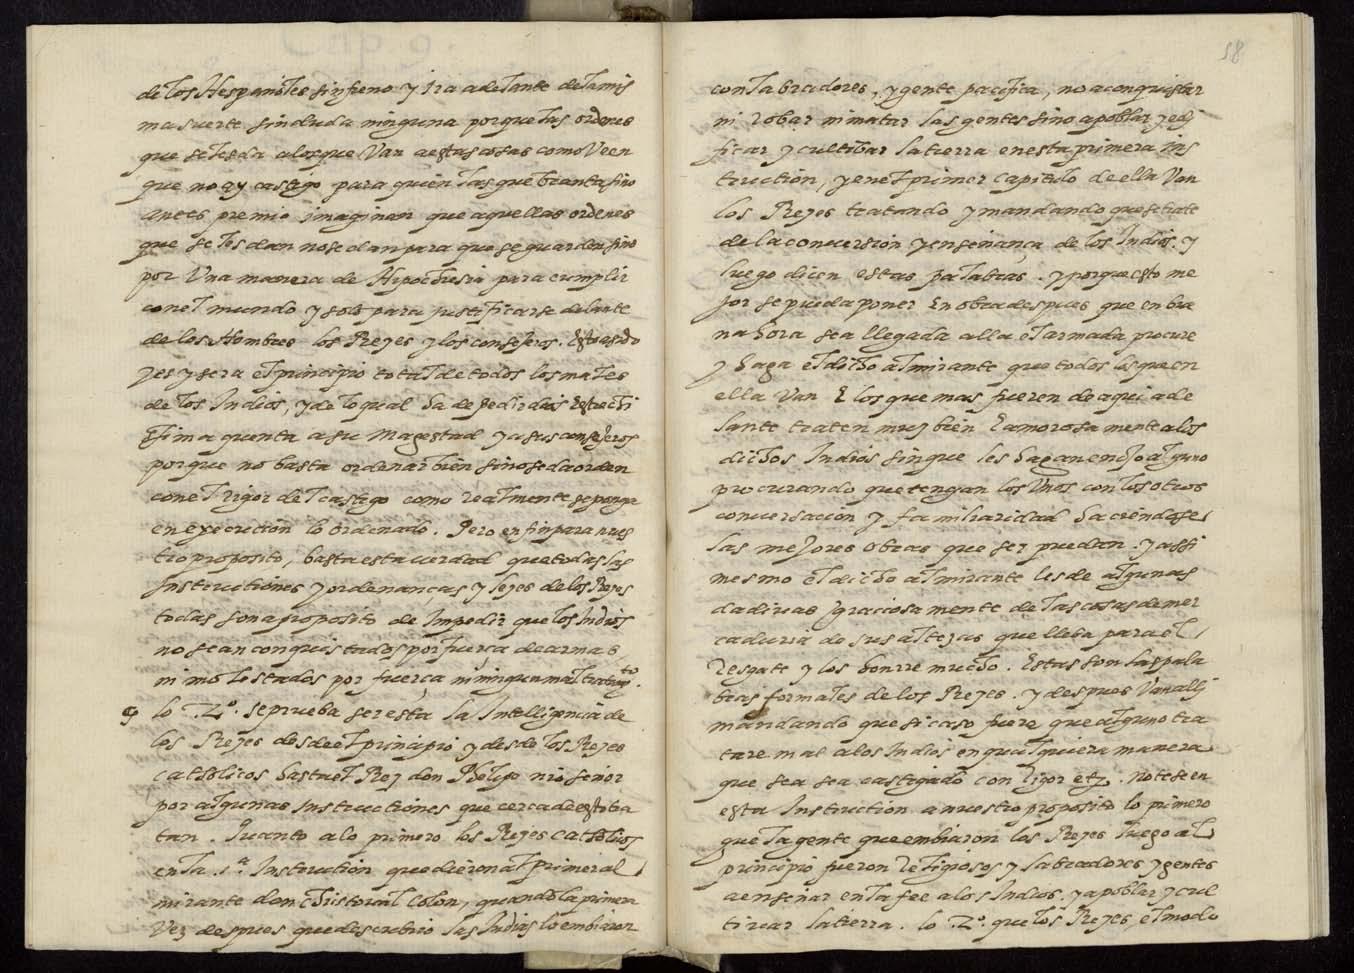 de los Hespañoles sin freno y ira adelante de la mis
ma suerte sin duda ninguna porque las ordenes
que se les da a los que Van a estas cosas como Veen
que no ay castigo para quien las quebranta sino
antes premio imaginan que aquellas ordenes
que se les dan no se dan para que se guarden sino
por Una manera de Hipochresia para cumplir
con el mundo y solo para justificarse delante
de los Hombres los Reyes y los consejeros. Esto a sido
y es y sera el principio total de todos los males
de los Indios, y de lo qual ha de pedir dios estrechi
ssima quenta a su Magestad y a sus consejeros
porque no basta ordenar bien sino se da orden
con el rigor del castigo como realmente se ponga
en execution lo ordenado. Pero en fin para nues
tro proposito, basta esta verdad que todas las
Instructiones y ordenanças y leyes de los Reyes
todas son a proposito de Impedir que los Indios
no sean conquistados por fuerça de armas
ni molestados por fuerça ni ningun mal tratamyto.
lo .2º. se prueba ser esta la Intelligencia de
los Reyes desde el principio y desde los Reyes
catholicos hasta el Rey don Phelipe nro señor
por algunas Instructiones que cerca de esto tra
tan. Quanto a lo primero los Reyes catholicos
en la .1ª. Instruction que dieron al primer al
mirante don christoval Colon, quando la primera
Vez despues que descubrio las Indias lo embiaron
58
con labradores, y gente pacifica, no a conquistar
ni robar ni matar las gentes sino a poblar y edi
ficar y cultibar la tierra en esta primera ins
truction, y en el primer capitulo de ella Van
los Reyes tratando y mandando que se trate
de la conversion y enseñança de los Indios. y
luego dicen estas palabras. y porque esto me
jor se pueda poner en obra despues que en bue
na hora sea llegada alla el armada procure
y haga el dicho almirante que todos los que en
ella Van E los que mas fueren de aqui ade
lante traten muy bien E amorosamente a los
dichos Indios sin que les hagan enojo alguno
procurando que tengan los Unos con los otros
conversacion y familiaridad haciendose
las mejores obras que ser puedan. y assi
mesmo el dicho almirante les de algunas
dadivas graciosamente de las cosas de mer
caduria de sus altezas que lleba para el
Resgate y los honrre mucho. Estas son las pala
bras formales de los Reyes. y despues Van alli
mandando que si caso fuere que alguno tra
tare mal a los Indios en qualquiera manera
que sea sea castigado con rigor etz. Notese en
esta Instruction a nuestro proposito lo primero
que la gente que embiaron los Reyes luego al
principio fueron Religiosos y labradores y gentes
a enseñar en la fee a los Indios. y a poblar y cul
tivar la tierra. lo .2º. que los Reyes, el modo